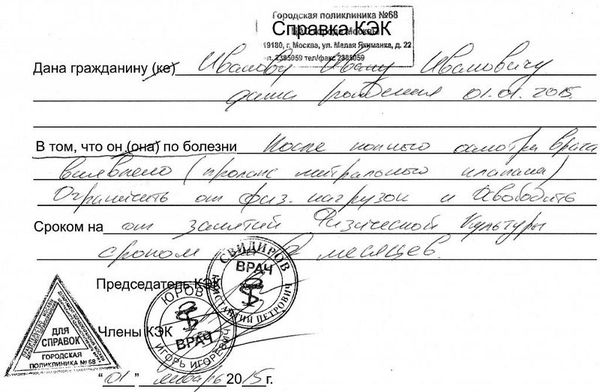 Городская поликлиника №68
Справка КЭК
119180, г. Москва, ул. Малая Якиманка, д. 22
Дана гражданину (ке) Иванову Ивану Ивановичу
дата рождения 01.01.2015.
В том, что он (она) по болезни После полного осмотра врача
выявлено (пролапс митрального клапана)
Ограничить от физ. нагрузок и освободить
Сроком на от занятий Физической Культуры
сроком месяцев.
СВИДИРОВ
ВРАЧ
ПЕТРОВИЧ
Председатель КЭК
ЮРОВ
ВРАЧ
ИГОРЬ ИГОРЕВИЧ
Члены КЭК
ДЛЯ
СПРАВОК
ГОРОДСКАЯ
ПОЛИКЛИНИКА №68
"01" январь 2015 г.